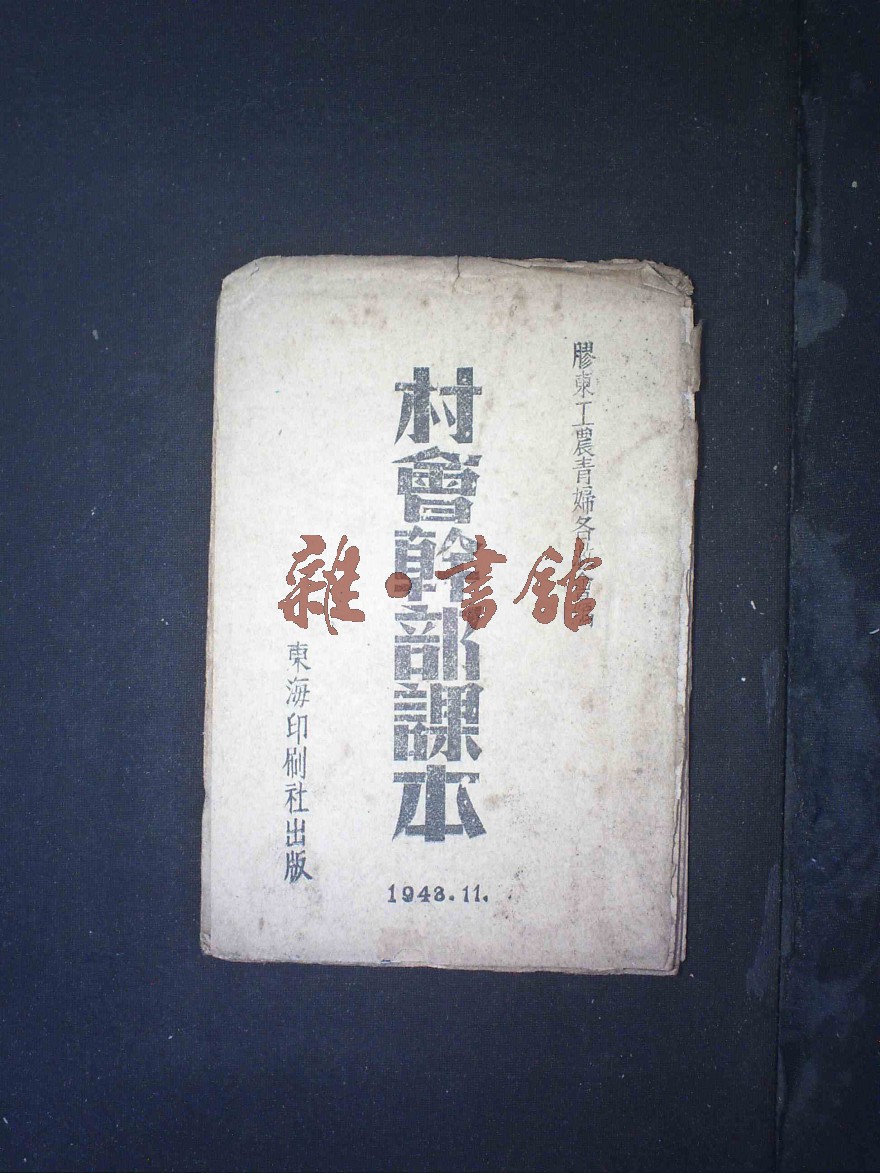 膠東工農青婦各救會編
村會幹部課本
東海印刷社出版
1943.11.
雜·書館